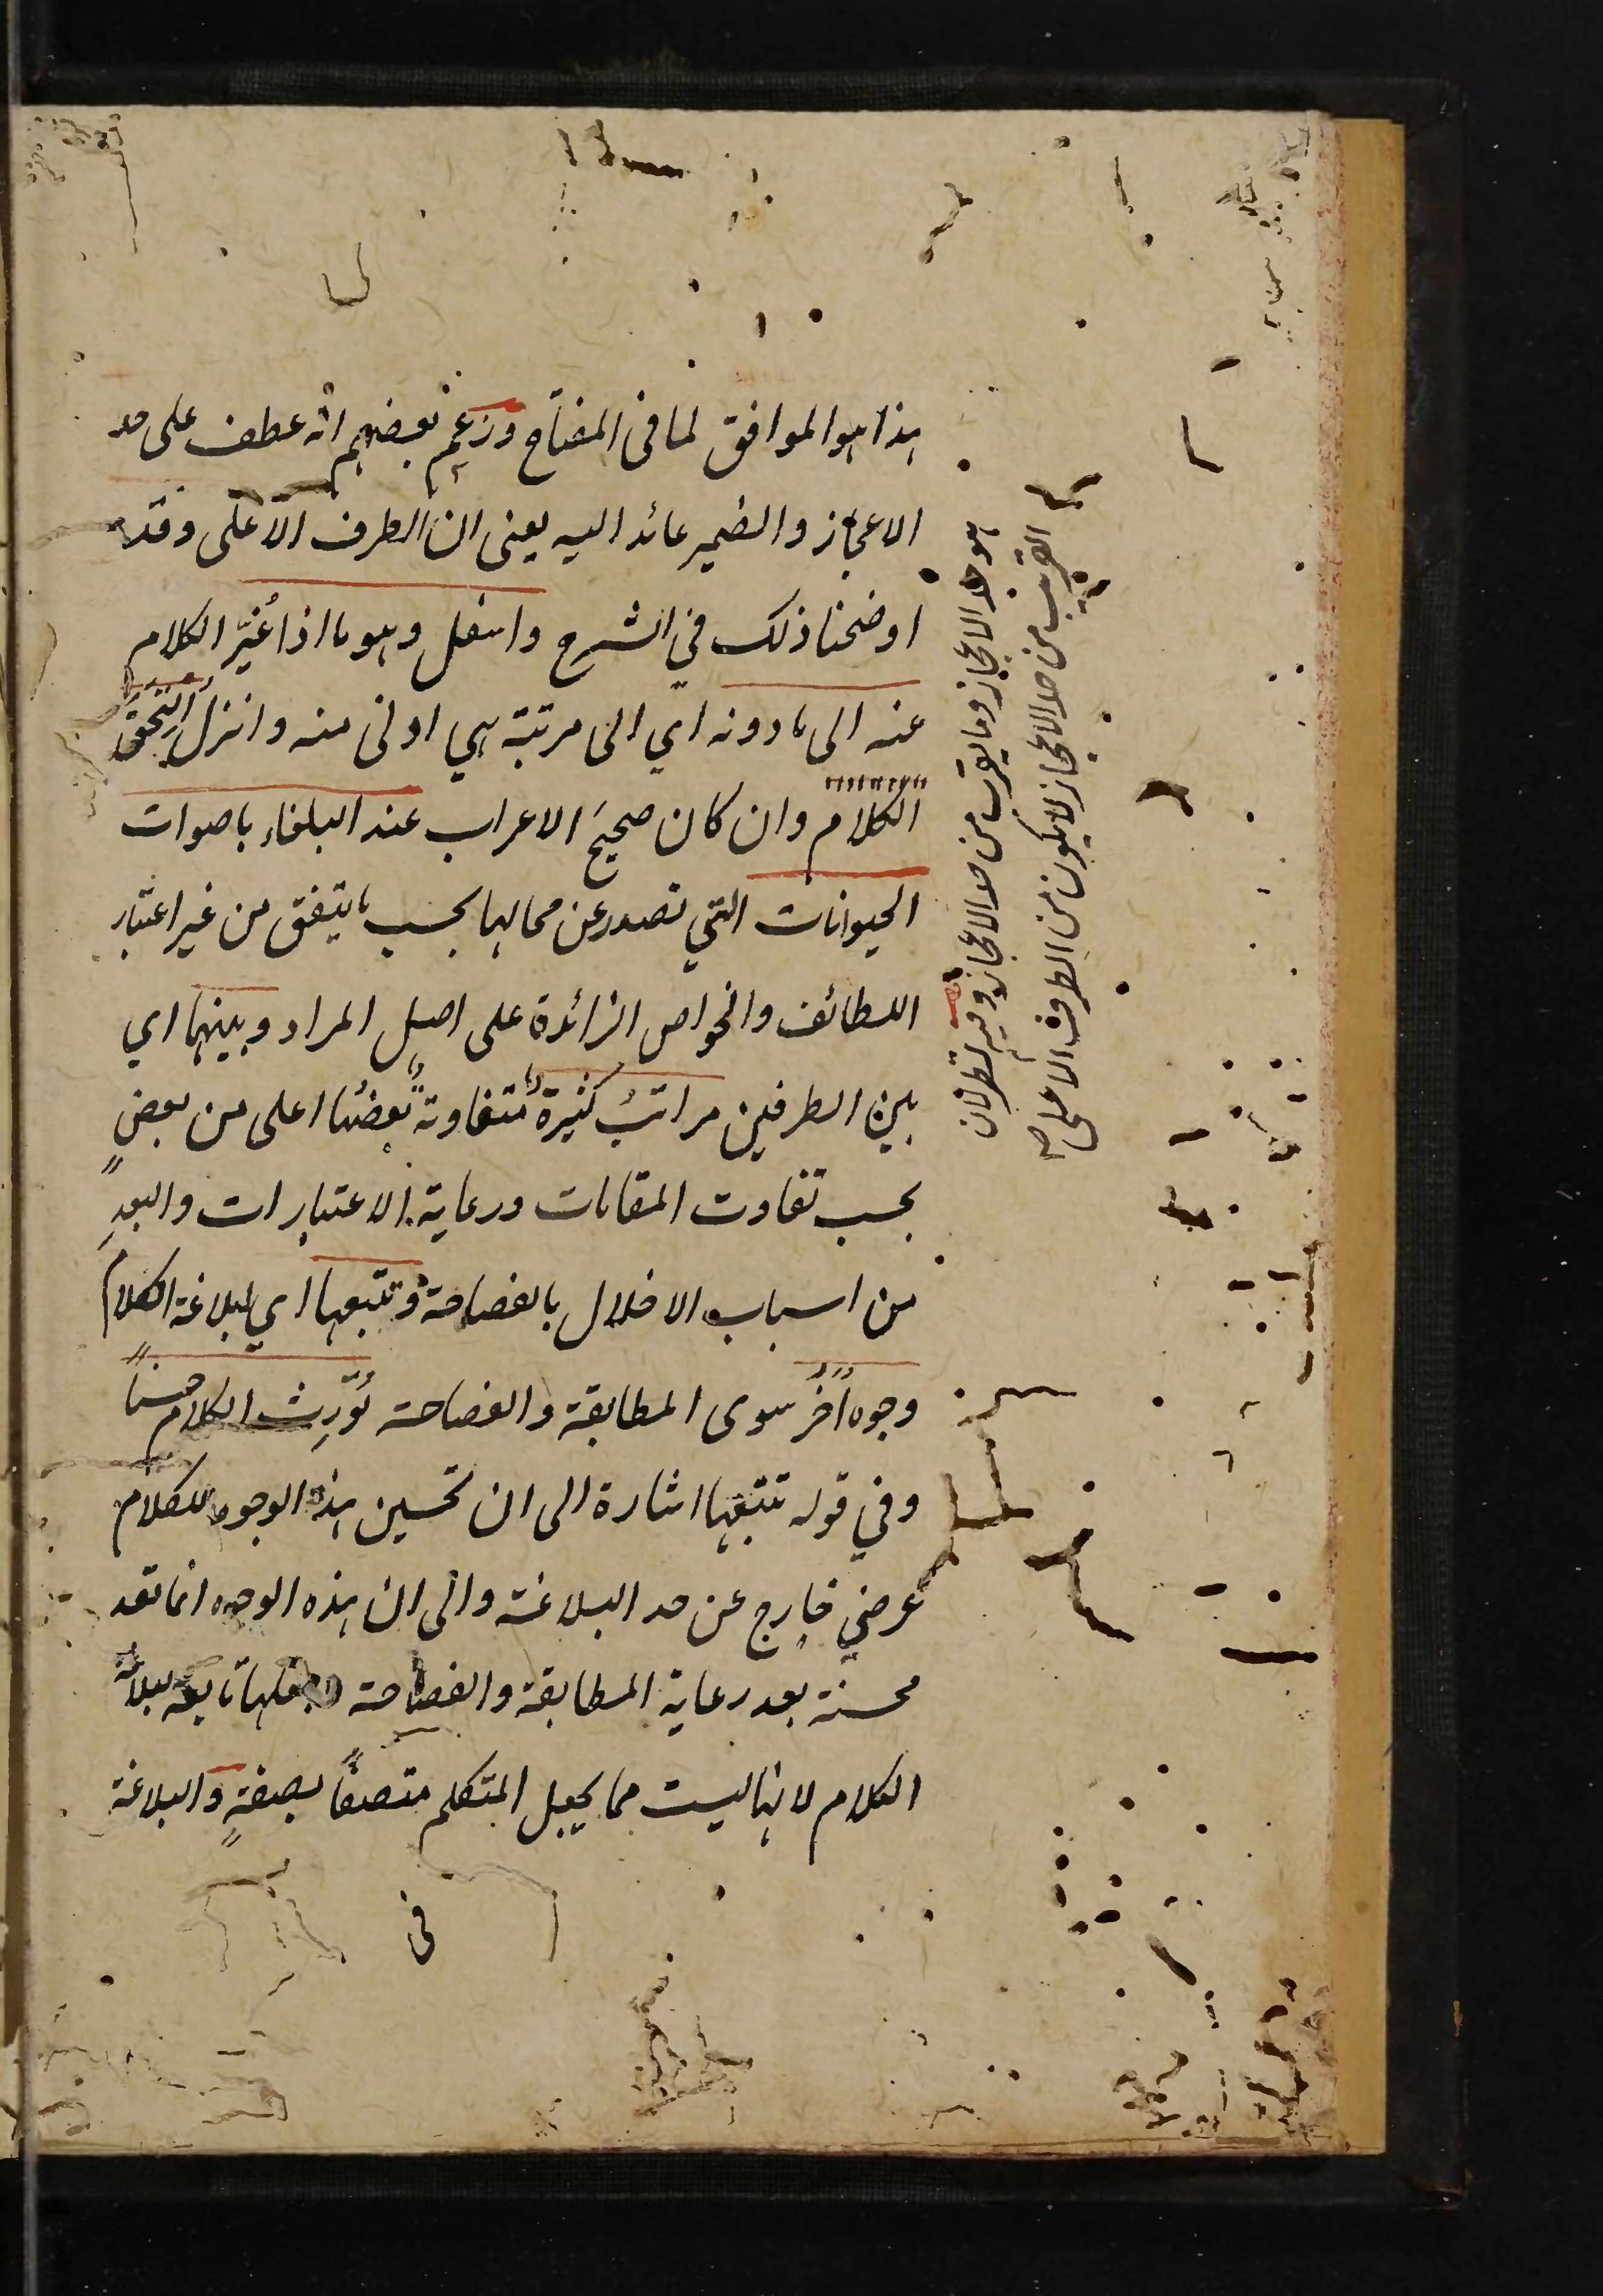 هذا هو الموافق لما فى المفتاح وزعم بعضهم انّه عطف على حد
الاعجاز والضمير عائد اليه يعنى ان الطرف الاعلى
هو حد الاعجاز وما يقرب من حد الاعجاز وفيه نظر لان
القريب من حد الاعجاز لا يكون من الطرف الاعلى صح
وقد
اوضحنا ذلك في الشرح واسفل وهو ما اذا غُيّر الكلام
عنه الى ما دونه اي الى مرتبة هي ادنى منه وانزل اِلتَحَقَ
الكلام وان كان صحيحَ الاعراب عند البلغاء باصوات
الحيوانات التي تصدر عن محالها بحسب ما يتفق من غير اعتبار
اللطائف والخواص الزائدة على اصل المراد وبينهما اي
بين الطرفين مراتبُ كثيرةٌ متفاوتةٌ بعضُها اعلى من بعضٍ
بحسب تفاوت المقامات ورعاية الاعتبارات والبعدِ
من اسباب الاخلال بالفصاحة وتتبعها اي لبلاغة الكلام
وجوه اُخَرُ سوى المطابقة والفصاحة تُورِث الكلام حسناً
وفي قوله تتبعها اشارة الى ان تحسين هذه الوجوه للكلام
عرضي خارج عن حد البلاغة والى ان هذه الوجوه انما تعد
محسنة بعد رعاية المطابقة والفصاحة وجعلها تابعة لبلاغة
الكلام لانها ليست مما يجعل المتكلم متصفاً بصفةٍ والبلاغة
فى